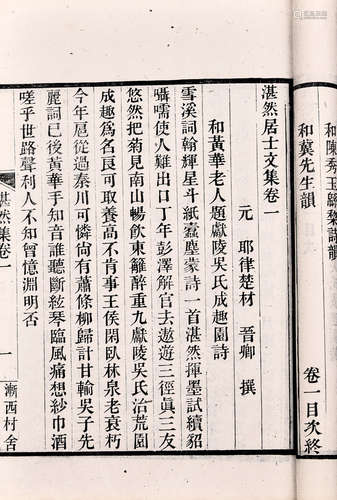 和陳秀玉緜棃詩韻
和冀先生韻
卷一目次終
湛然居士文集卷一
元 耶律楚材 晉卿 撰
和黃華老人題獻陵吳氏成趣園詩
雪溪詞翰輝星斗紙蠧塵蒙詩一首湛然揮墨試續貂
囁嚅使人難出口丁年彭澤解官去遨遊三徑眞三友
悠然把菊見南山暢飲東籬醉重九獻陵吳氏治荒園
成趣爲名良可取養高不肯事王侯閑臥林泉老衰朽
今年扈從過秦川可憐尚有蕭條柳歸計甘輸吳子先
麗詞已後黃華手知音誰聽斷絃琴臨風痛想紗巾酒
嗟乎世路聲利人不知曾憶淵明否
湛然集卷一
一
漸西村舍